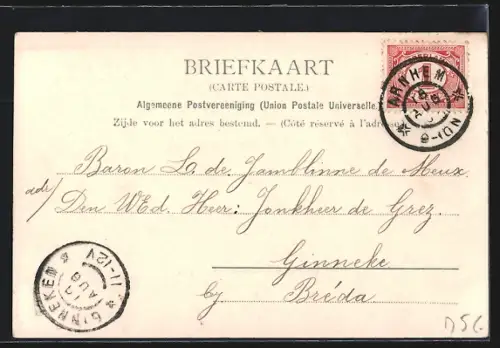 BRIEFKAART
(CARTE POSTALE.)
Algemeene Postvereeniging (Union Postale Universelle)
Zijde voor het adres bestemd. — (Côté réservé à l'adresse)
ARNHEM
AUG
9-10N
Baron L. de Jamblinne de Meux
ade/ Den WEd. Heer: Jonkheer de Grez.
Ginneken
by Bréda
GINNEKEN
13
AUG
11-12V
D56